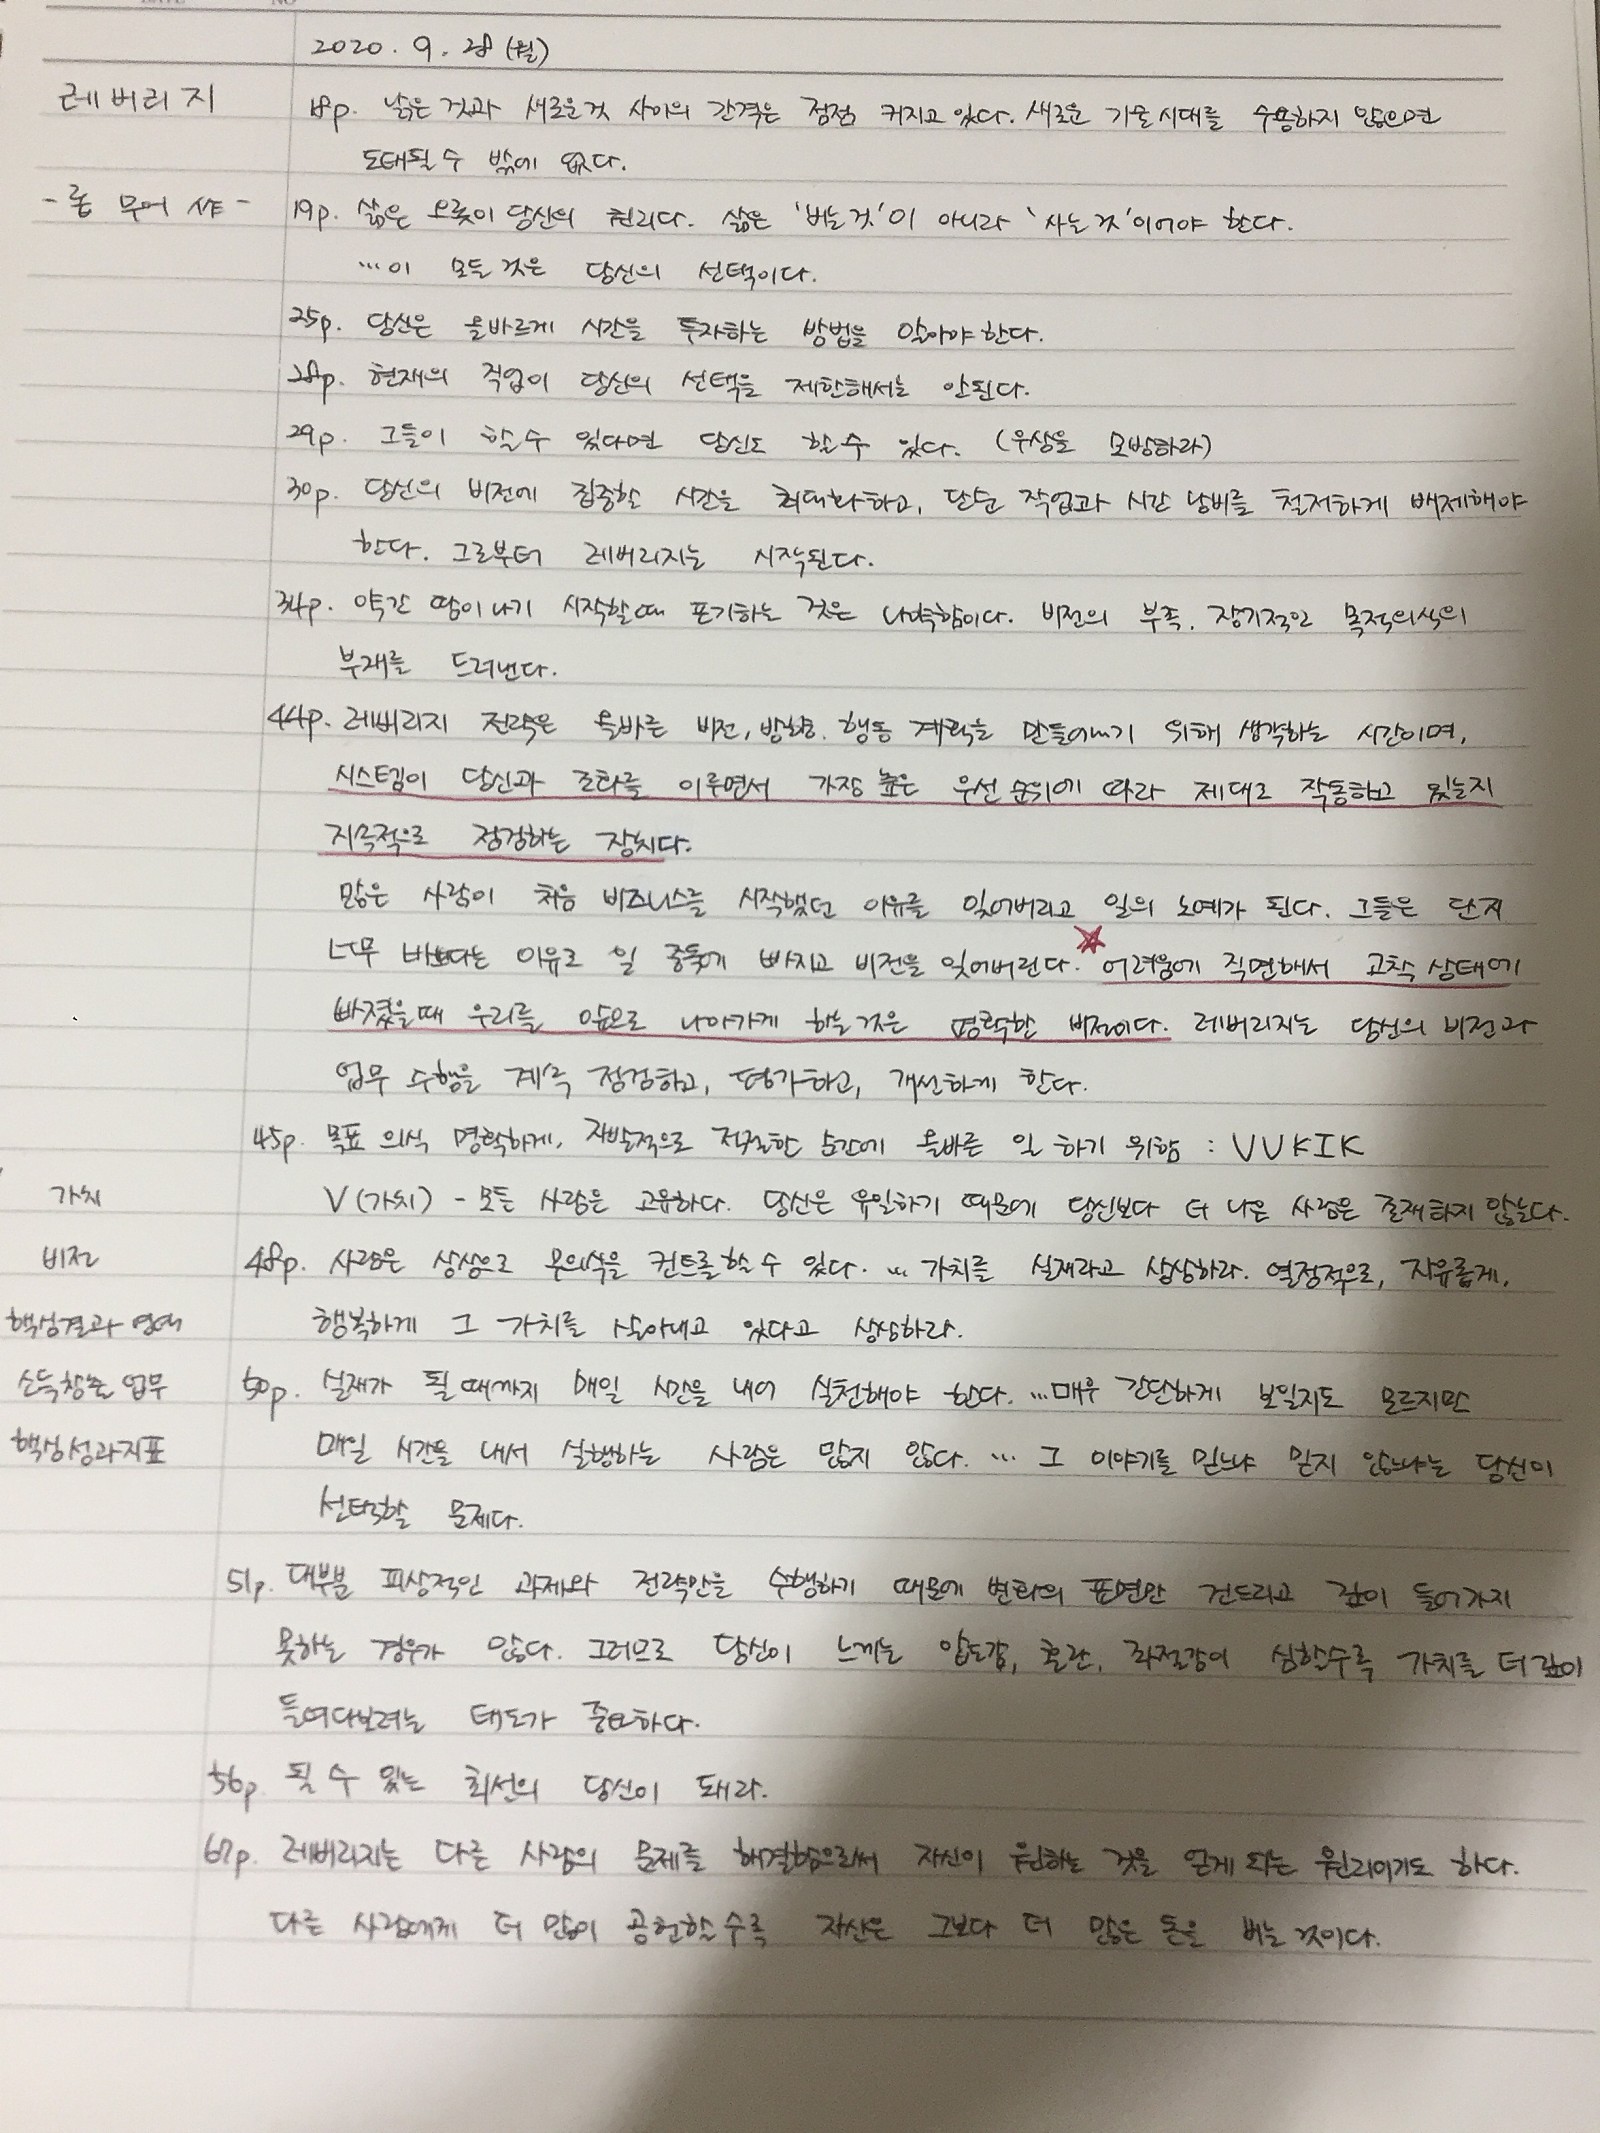 2020. 9. 28 (월)
레버리지
18p. 낡은 것과 새로운 것 사이의 간격은 점점 커지고 있다. 새로운 기술시대를 수용하지 않으면
도태될 수 밖에 없다.
- 롭 무어 著 -
19p. 삶은 오롯이 당신의 권리다. 삶은 '버는 것'이 아니라 '사는 것'이어야 한다.
…이 모든 것은 당신의 선택이다.
25p. 당신은 올바르게 시간을 투자하는 방법을 알아야한다.
28p. 현재의 직업이 당신의 선택을 제한해서는 안된다.
29p. 그들이 할 수 있다면 당신도 할 수 있다. (우상을 모방하라)
30p. 당신의 비전에 집중할 시간을 최대화하고, 단순 작업과 시간 낭비를 철저하게 배제해야
한다. 그로부터 레버리지는 시작된다.
34p. 약간 땀이 나기 시작할때 포기하는 것은 나약함이다. 비전의 부족, 장기적인 목적의식의
부재를 드러낸다.
44p. 레버리지 전략은 올바른 비전, 방향, 행동 계획을 만들어내기 위해 생각하는 시간이며,
시스템이 당신과 조화를 이루면서 가장 높은 우선 순위에 따라 제대로 작동하고 있는지
지속적으로 점검하는 장치다.
많은 사람이 처음 비즈니스를 시작했던 이유를 잊어버리고 일의 노예가 된다. 그들은 단지
너무 바쁘다는 이유로 일 중독에 빠지고 비전을 잊어버린다. ☆ 어려움에 직면해서 고착 상태에
빠졌을때 우리를 앞으로 나아가게 하는 것은 명확한 비전이다. 레버리지는 당신의 비전과
업무 수행을 계속 점검하고, 평가하고, 개선하게 한다.
45p. 목표 의식 명확하게, 자발적으로 적절한 순간에 올바른 일 하기 위함 : VVKIK
가치
V (가치) - 모든 사람은 고유하다. 당신은 유일하기 때문에 당신보다 더 나은 사람은 존재하지 않는다.
비전
48p. 사람은 상상으로 무의식을 컨트롤할 수 있다. … 가치를 실재라고 상상하라. 열정적으로, 자유롭게,
핵심결과 영역
행복하게 그 가치를 살아내고 있다고 상상하라.
소득창출 업무
50p. 실재가 될 때까지 매일 시간을 내어 실천해야 한다. …매우 간단하게 보일지도 모르지만
핵심성과지표
매일 시간을 내서 실행하는 사람은 많지 않다. … 그 이야기를 믿느냐 믿지 않느냐는 당신이
선택할 문제다.
51p. 대부분 피상적인 과제와 전략만을 수행하기 때문에 변화의 표면만 건드리고 깊이 들어가지
못하는 경우가 많다. 그러므로 당신이 느끼는 압도감, 혼란, 좌절감이 심할수록 가치를 더 깊이
들여다보려는 태도가 중요하다.
56p. 될 수 있는 최선의 당신이 돼라.
67p. 레버리지는 다른 사람의 문제를 해결함으로써 자신이 원하는 것을 얻게 되는 원리이기도 하다.
다른 사람에게 더 많이 공헌할수록 자신은 그보다 더 많은 돈을 버는 것이다.